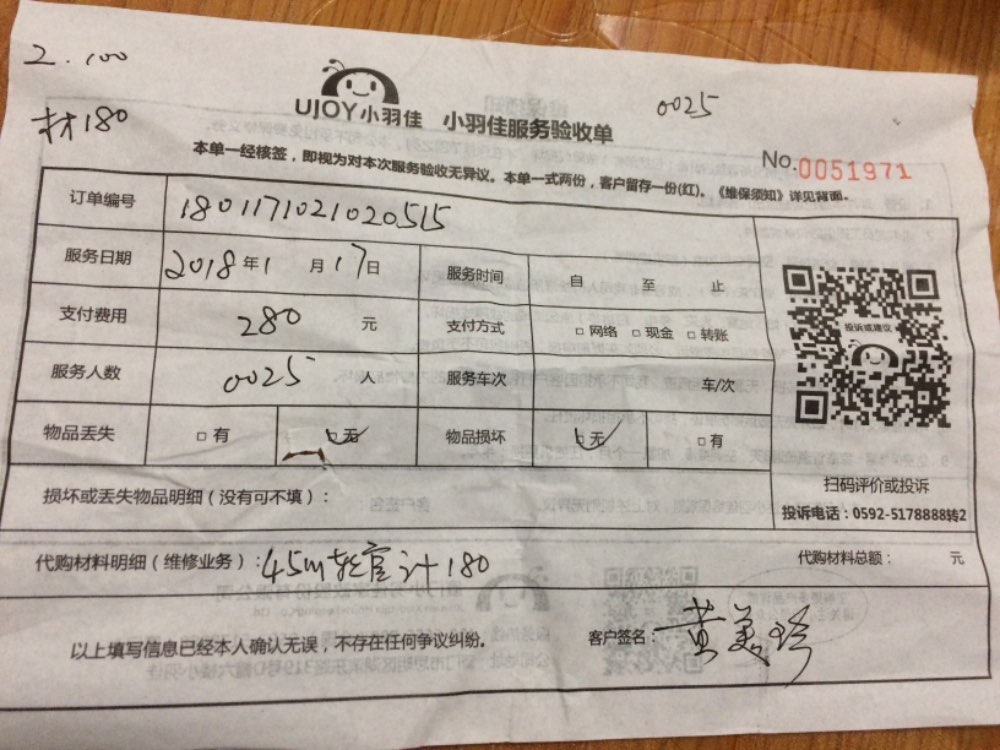 2.100
材180
UJOY小羽佳 小羽佳服务验收单
0025
No.0051971
本单一经核签，即视为对本次服务验收无异议。本单一式两份，客户留存一份(红)。《维保须知》详见背面。
订单编号 1801171021020515
服务日期 2018年1月17日 服务时间 自 至 止
支付费用 280元 支付方式 □网络 □现金 □转账
投诉或建议
服务人数 0025人 服务车次 车/次
物品丢失 □有 □无 物品损坏 □无 □有
扫码评价或投诉
损坏或丢失物品明细（没有可不填）：
投诉电话：0592-5178888转2
代购材料明细（维修业务）：45m 计180 代购材料总额： 元
以上填写信息已经本人确认无误，不存在任何争议纠纷。 客户签名：黄美珍